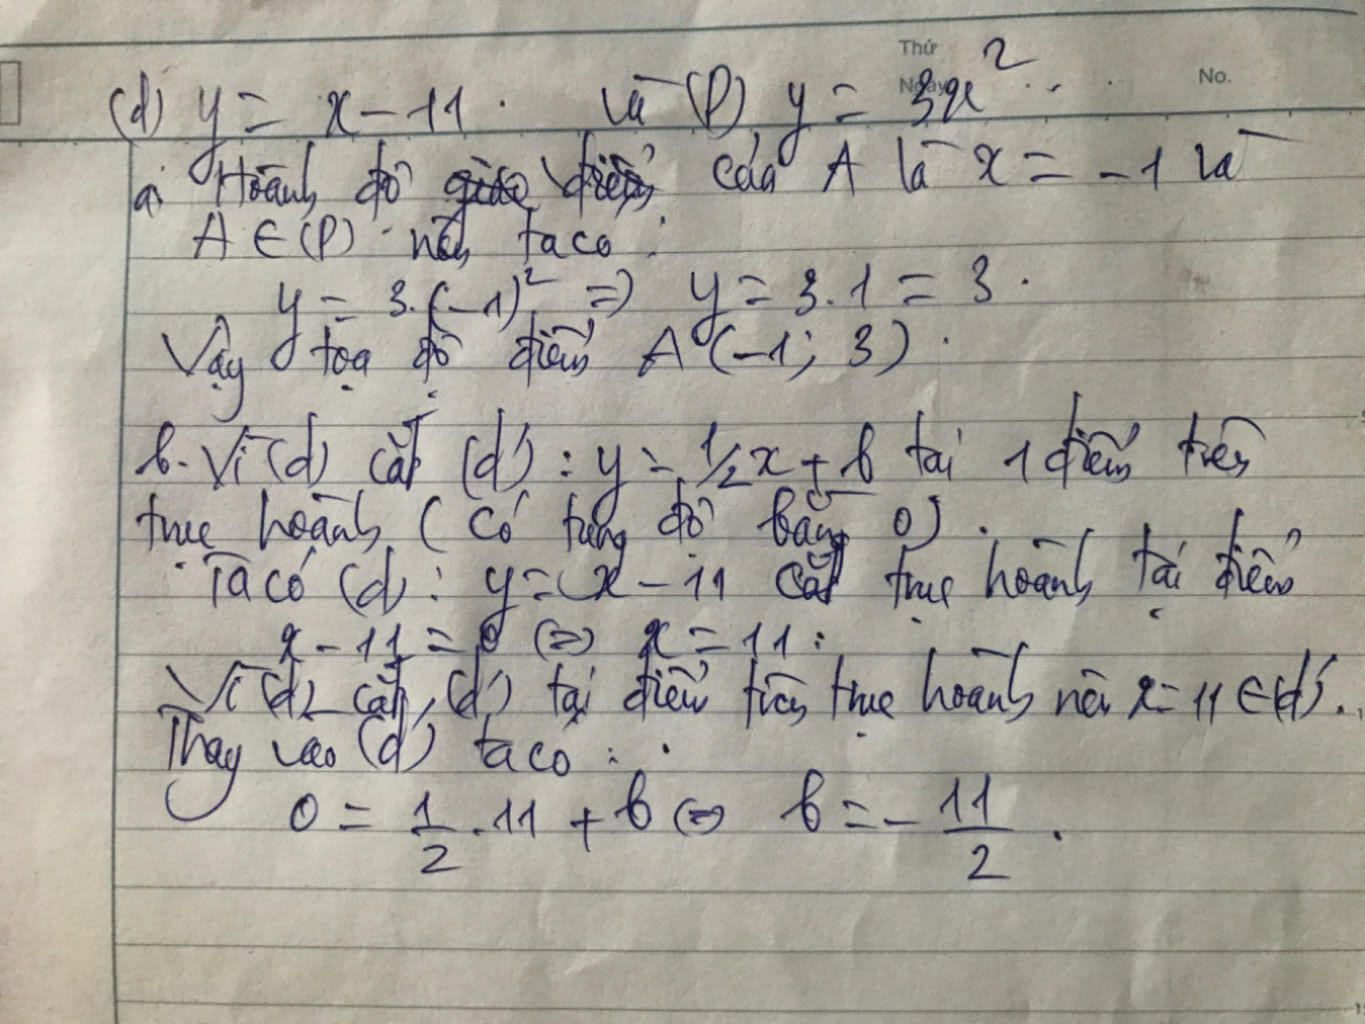 Thứ
Ngày
No.
(d) y = x - 11. và (P) y = 3x²
a. Hoành độ điểm của A là x = -1 và
A ∈ (P) nên ta có:
y = 3.(-1)² => y = 3.1 = 3.
Vậy tọa độ điểm A (-1; 3).
b. Vì (d) cắt (d'): y = 1/2x + b tại 1 điểm trên
trục hoành (có tung độ bằng 0).
Ta có (d): y = x - 11 cắt trục hoành tại điểm
x - 11 = 0 <=> x = 11:
Vì (d) cắt (d') tại điểm trên trục hoành nên x = 11 ∈ (d').
Thay vào (d') ta có:
0 = 1/2 . 11 + b <=> b = - 11/2.